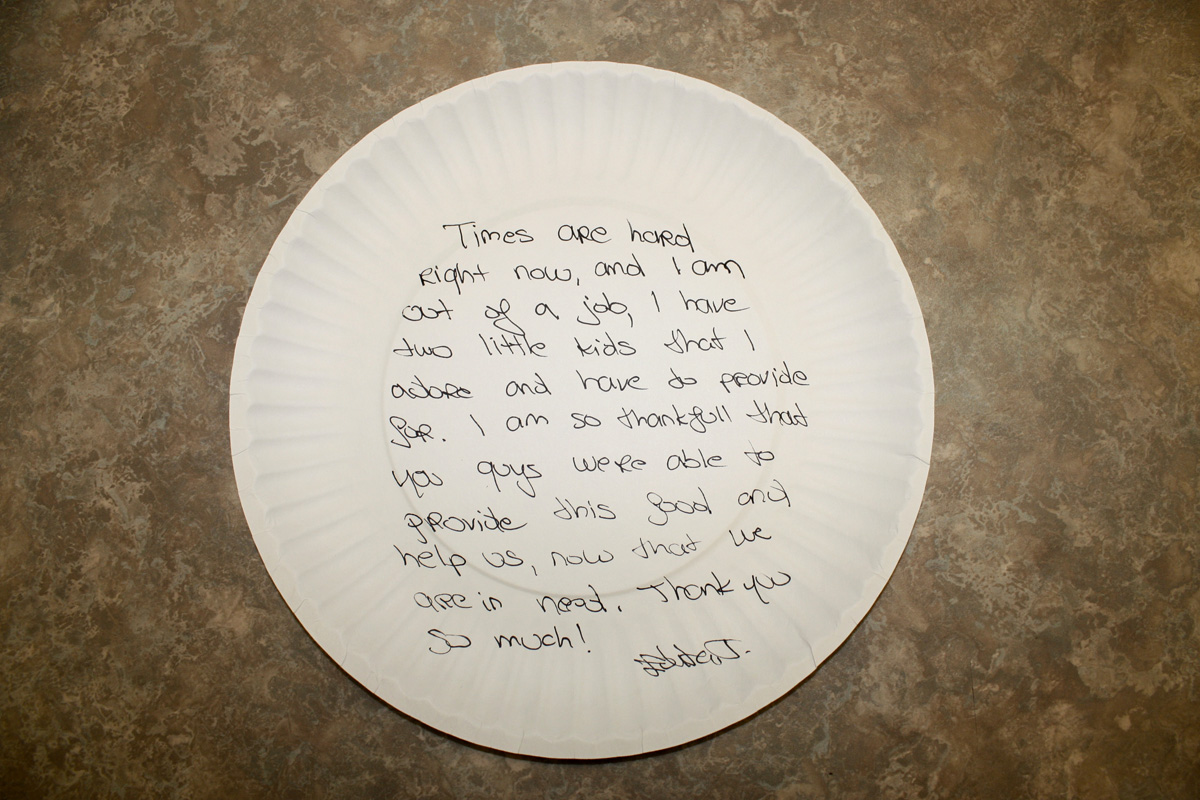 Times are hard
Right now, and I am
out of a job, I have
two little kids that I
adore and have to provide
for. I am so thankfull that
you guys were able to
provide this food and
help us, now that we
are in need. Thank you
so much!